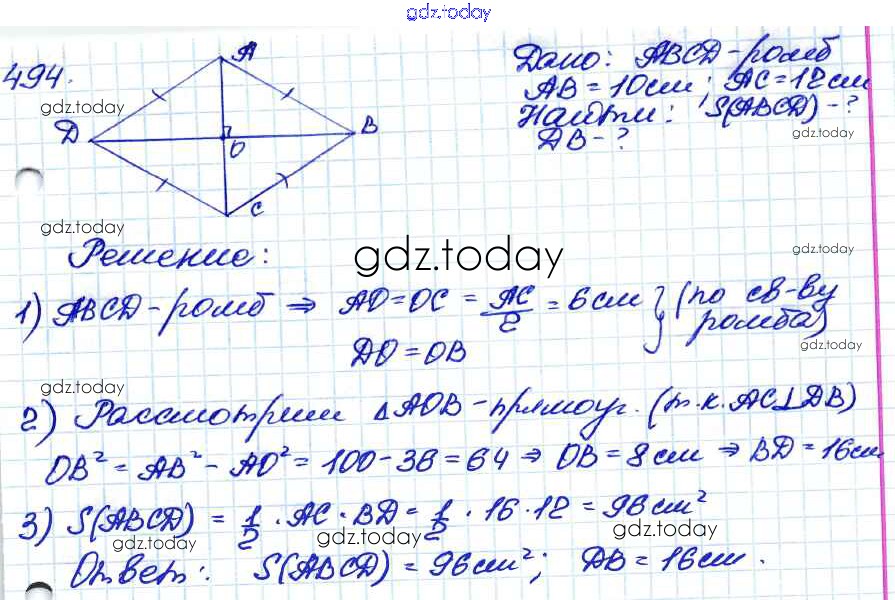 gdz.today
494.
A
D
B
O
C
Дано: ABCD-ромб
AB = 10см; AC = 12см
Найти: S(ABCD) - ?
DB - ?
gdz.today
gdz.today
gdz.today
Решение:
gdz.today
gdz.today
1) ABCD-ромб ⇒ AO = OC = AC/2 = 6см } (по св-ву ромба)
DO = OB
gdz.today
gdz.today
2) Рассмотрим △AOB-прямоуг. (т.к. AC⊥DB)
OB² = AB² - AO² = 100 - 36 = 64 ⇒ OB = 8см ⇒ BD = 16см.
3) S(ABCD) = 1/2 · AC · BD = 1/2 · 16 · 12 = 96см²
gdz.today
gdz.today
gdz.today
Ответ: S(ABCD) = 96см²; DB = 16см.